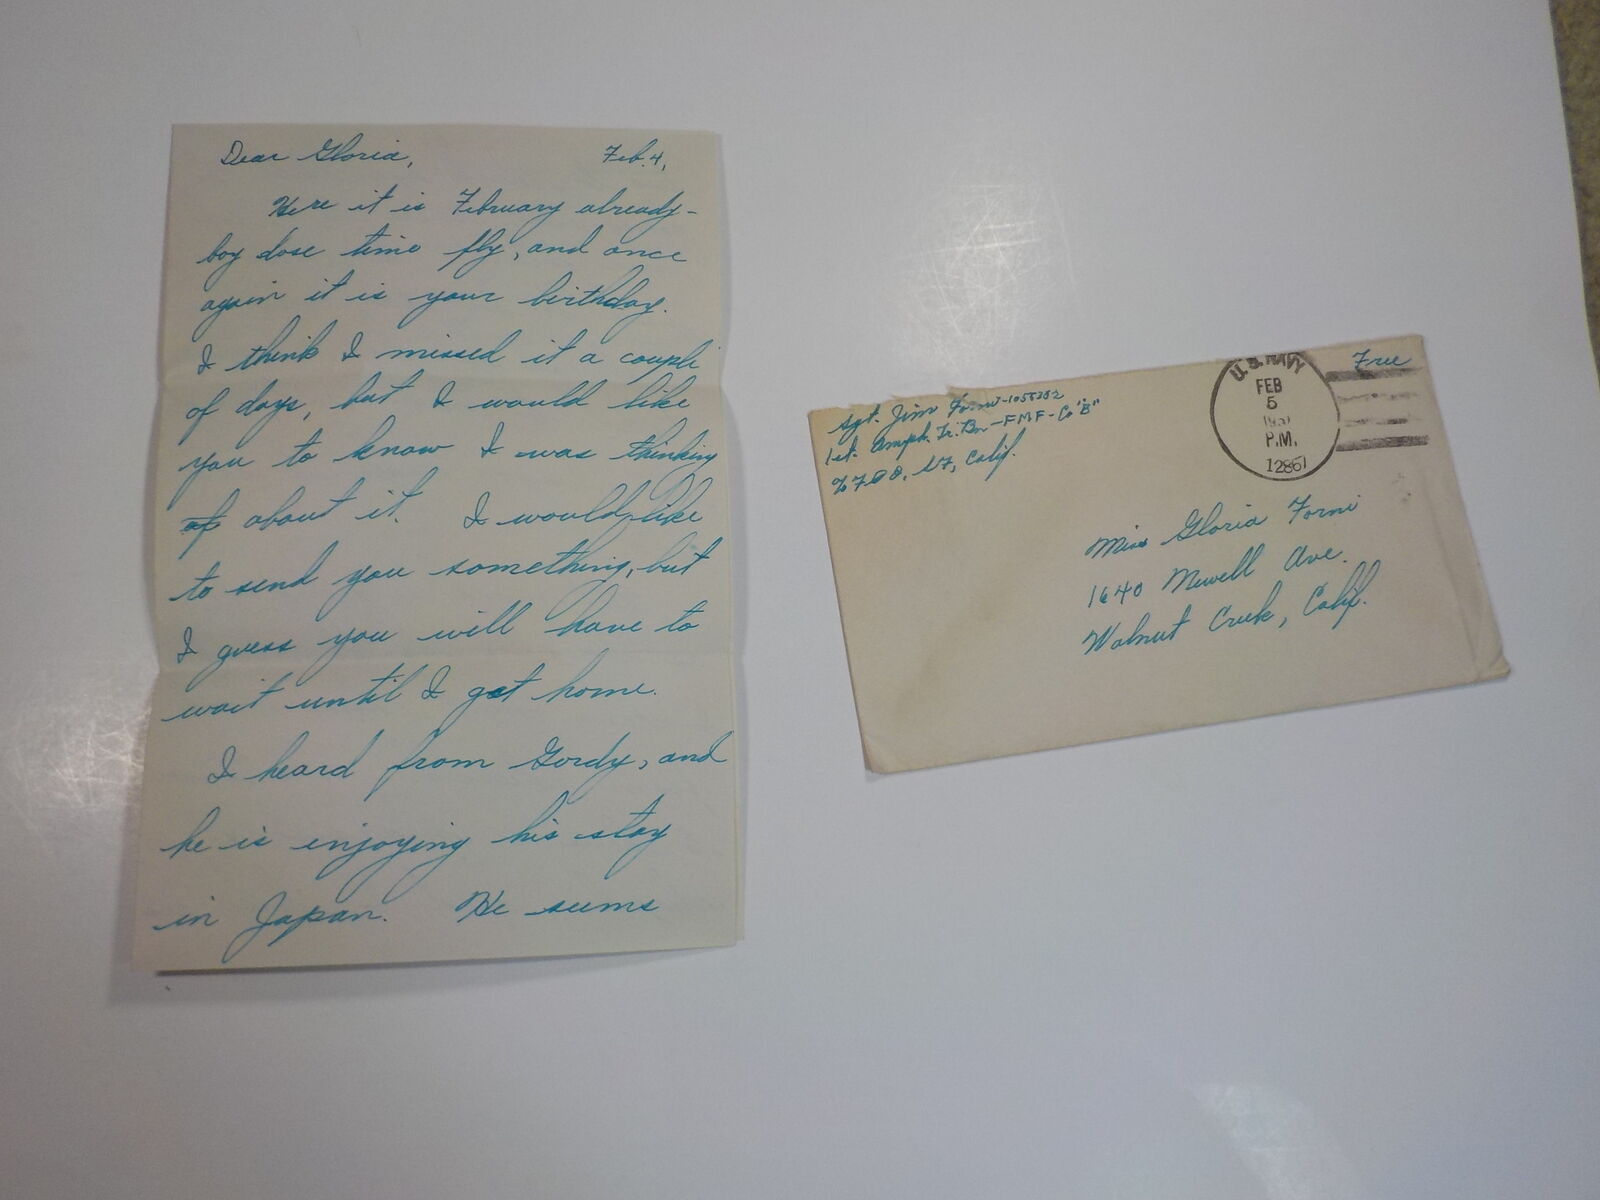 Dear Gloria, Feb. 4,
Here it is February already-
boy dose time fly, and once
again it is your birthday.
I think I missed it a couple
of days, but I would like
you to know I was thinking
of about it. I would like
to send you something, but
I guess you will have to
wait until I get home.
I heard from Gordy, and
he is enjoying his stay
in Japan. He seems
Sgt. Jim Forni-
1st. Amph. Tr. Bn-FMF-Co "B"
% FPO, SF, Calif.
U.S. NAVY
FEB
5
P.M.
12867
Free
Miss Gloria Forni
1640 Newell Ave.
Walnut Creek, Calif.